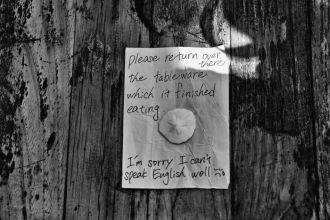 Please return over
there
the tableware
which it finished
eating
I'm sorry I can't
speak English well